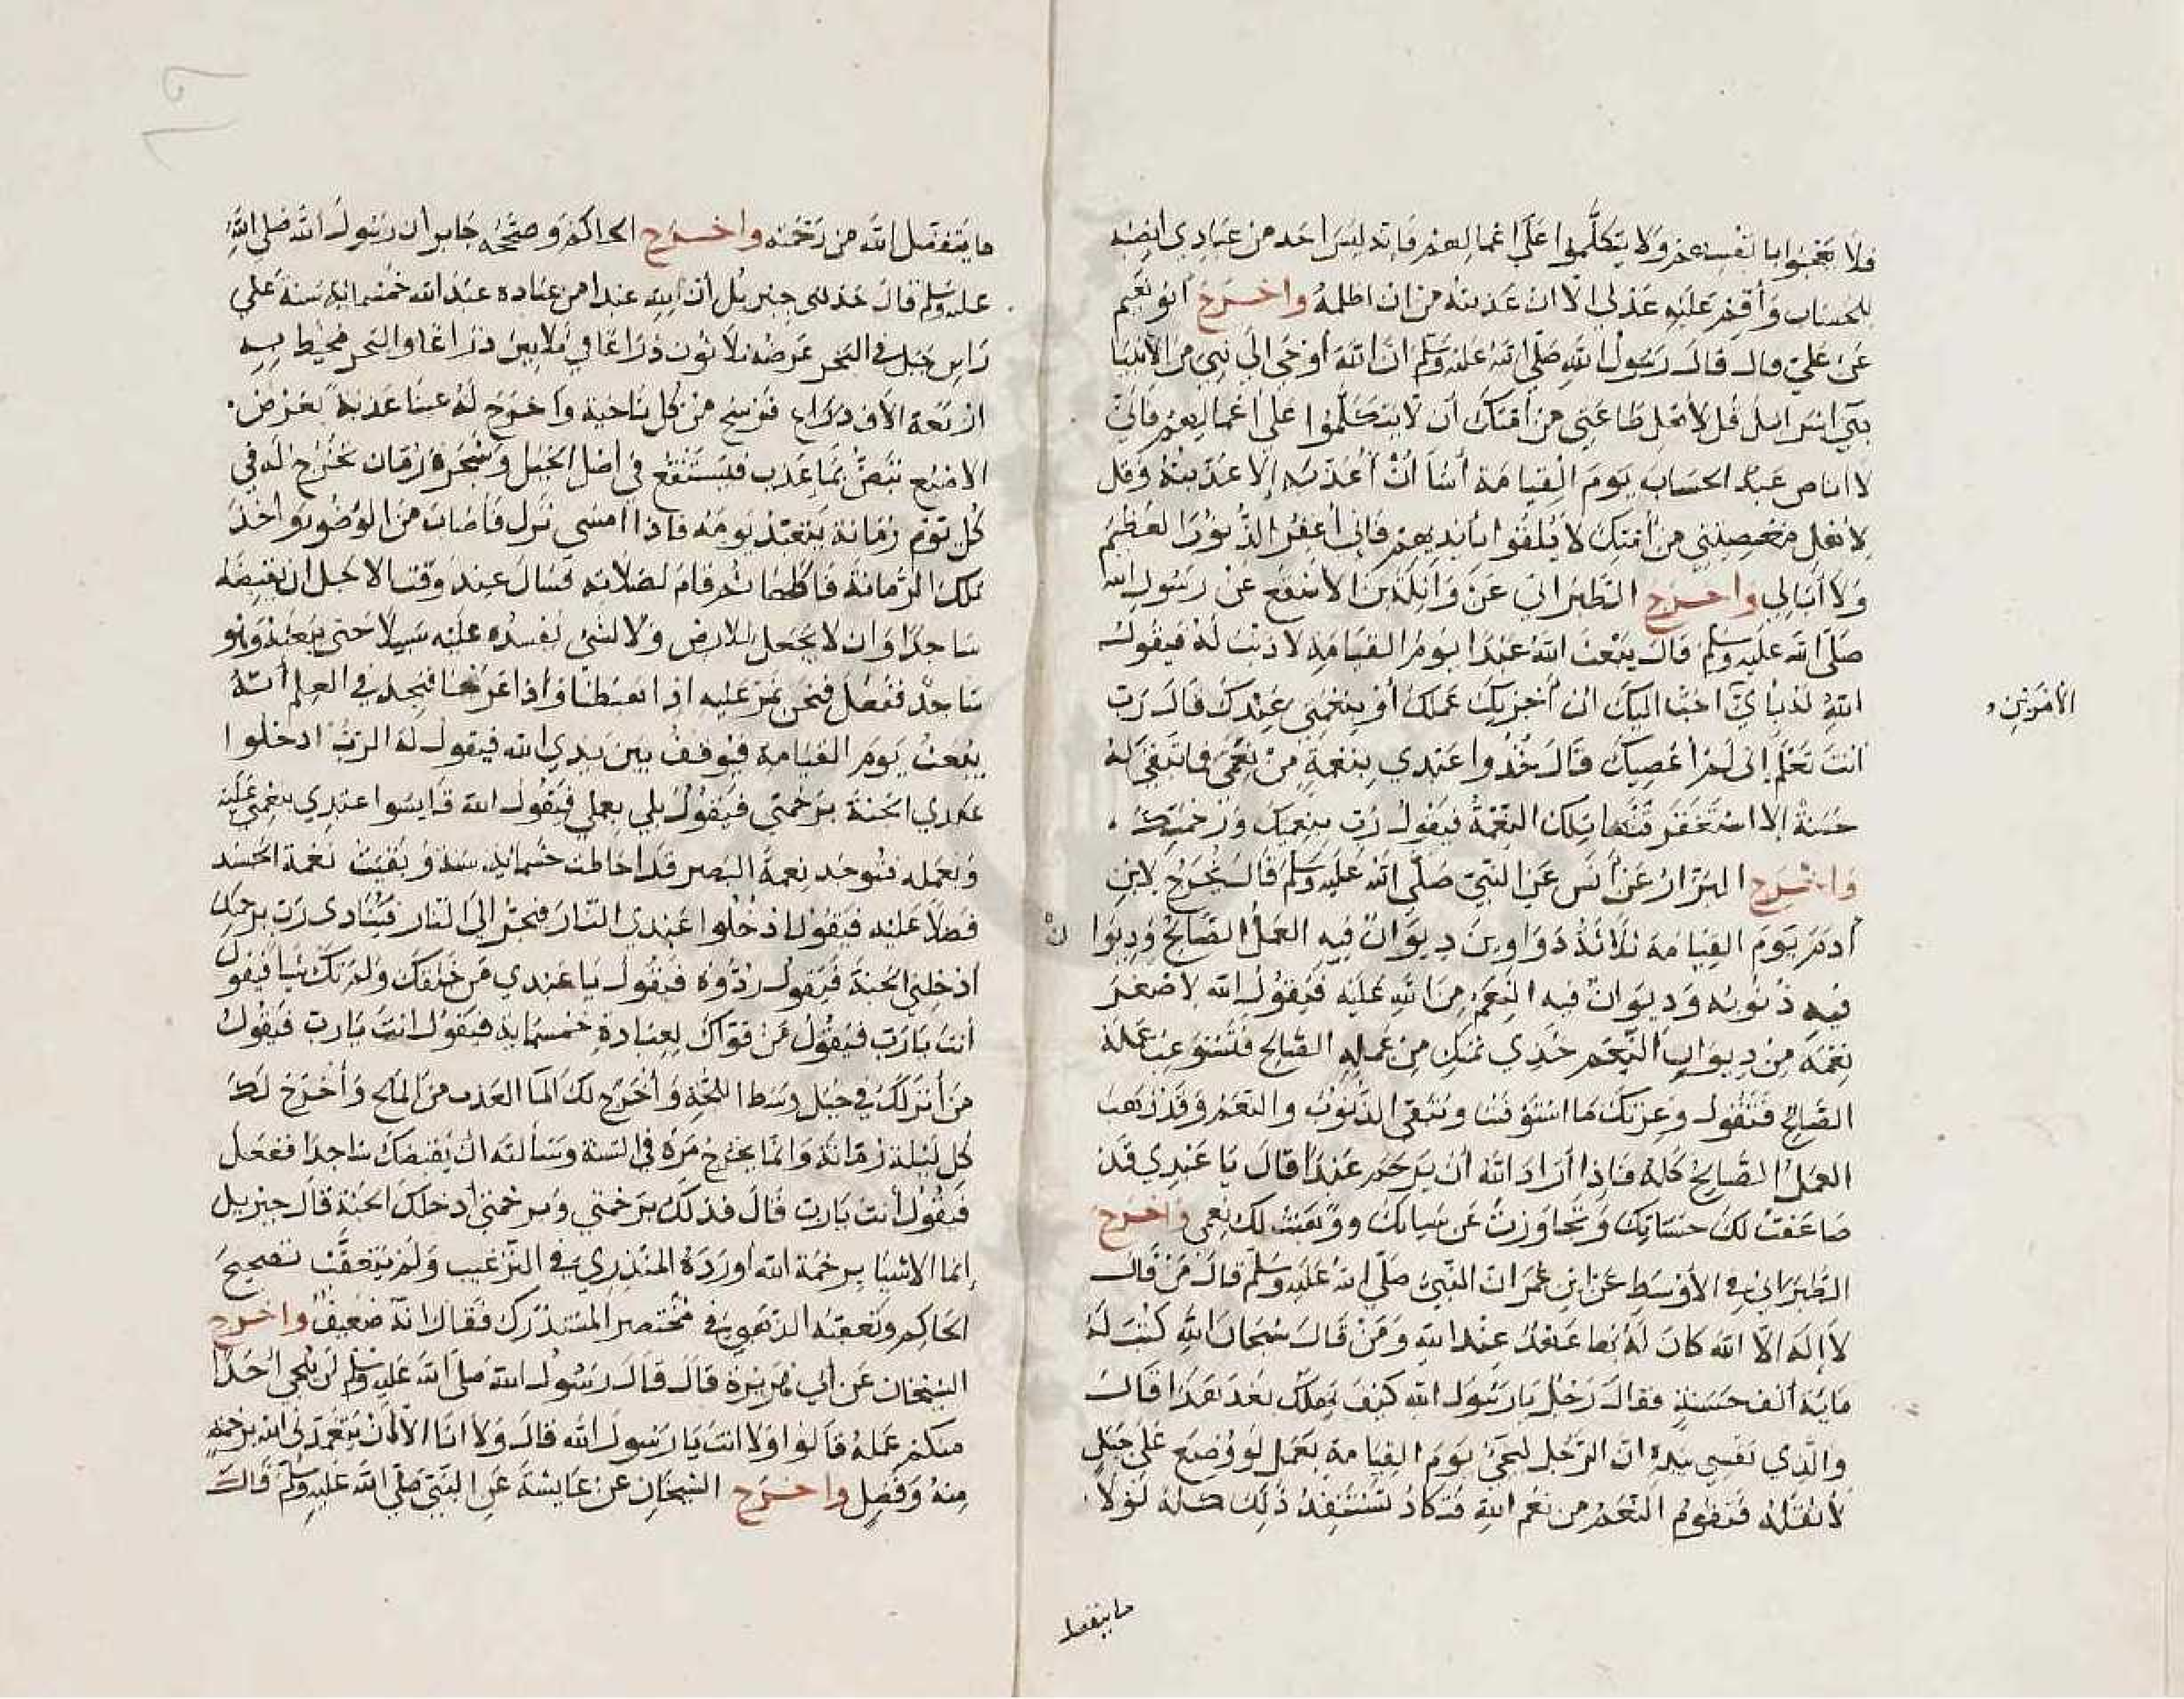 فلا يعجبوا بانفسهم ولا يتكلموا على اعمالهم فانه ليس احد من عبادي انصبه
للحساب وأقيم عليه عدلي الا ان عذبته من ان اظلمه واخرج ابو نعيم
عن علي قال قال رسول الله صلى الله عليه وسلم ان الله أوحى الى نبي من الأنبيا
بني اسرايل قل لأهل طاعتي من أمتك أن لا يتكلموا على اعمالهم فاني
لا اناص عبدا الحساب يوم القيامة أشا أن أعذبه إلا عذبته وقل
لاهل معصيتي من أمتك لا يلقوا بايديهم فاني أغفر الذنوب العظيم
ولا أبالي واخرج الطبراني عن واثلة بن الاسقع عن رسول الله
صلى الله عليه وسلم قال يبعث الله عبدا يوم القيامة لا ذنب له فيقول
الله له باي احب اليك ان أجزيك عملك أو بنعمتي عندك قال رب
الأمرين
انت تعلم إني لم أعصيك قال خذوا عبدي بنعمة من نعمي فما تبقى له
حسنة إلا استغفرقتها تلك النعمة فيقول رب بنعمتك ورحمتك
واخرج البزار عن أنس عن النبي صلى الله عليه وسلم قال يخرج لابن
أدم يوم القيامة ثلاثة دواوين ديوان فيه العمل الصالح وديوا ن
فيه ذنوبه وديوان فيه النعم من الله عليه فيقول الله لاصغر
نعمة من ديوان النعم خذي ثمنك من عمله الصالح فتستوعب عمله
الصالح فتقول وعزتك ما استوفيت وتبقى الذنوب والنعم وقد ذهب
العمل الصالح كله فاذا أراد الله أن يرحم عبدا قال يا عبدي قد
ضاعفت لك حسناتك وتجاوزت عن سياتك ووهبت لك نعمي واخرج
الطبراني في الأوسط عن ابن عمر ان النبي صلى الله عليه وسلم قال من قال
لا إله الا الله كان له بها عهد عند الله ومن قال سبحان الله كتب له
ماية ألف حسنة فقال رجل يا رسول الله كيف نهلك بعد هذا قال
والذي نفسي بيده ان الرجل ليجي يوم القيامة بعمل لو وضع على جبل
لأثقله فتقوم النعم من نعم الله فتكاد تستنفد ذلك كله لولا
ما يتفضل
ما يتفضل الله من رحمته واخرج الحاكم وصححه جابر أن رسول الله صلى الله
عليه وسلم قال حدثني جبريل أن لله عبدا من عباده عبد الله خمسماية سنة على
راس جبل في البحر عرضه ثلاثون ذراعا في ثلاثين ذراعا والبحر محيط به
اربعة الاف ذراع فرسخ من كل ناحية واخرج له عينا عذبة بعرض
الاصبع تبض بما عذب فيستنقع في اصل الجبل وشجرة رمان تخرج له في
كل يوم رمانة يتعبد يومه فاذا امسى نزل فاصاب من الوضوء واخذ
تلك الرمانة فاكلها ثم قام لصلاته فسال عند وقت الاجل ان يقبضه
ساجدا وان لا يجعل للارض ولا لشي يفسده عليه سبيلا حتى يبعثه وهو
ساجد ففعل فنحن نمر عليه اذا هبطنا واذا عرجنا فنجد في العلم أنه
يبعث يوم القيامة فيوقف بين يدي الله فيقول له الرب ادخلوا
عبدي الجنة برحمتي فيقول بلى بعملي فيقول الله قايسوا عبدي بنعمتي عليه
وبعمله فتوجد نعمة البصر قد احاطت خمسماية سنة وبقيت نعمة الجسد
فضلا عليه فيقول ادخلوا عبدي النار فيجر إلى النار فينادى رب برحمتك
ادخلني الجنة فيقول ردوه فيقول يا عبدي من خلقك ولم تك شيا فيقول
أنت يا رب فيقول من قواك لعبادة خمسماية فيقول انت يا رب فيقول
من أنزلك في جبل وسط اللجة وأخرج لك الما العذب من المالح وأخرج لك
كل ليلة رمانة وانما يخرج مرة في السنة وسالته ان يقبضك ساجدا ففعل
فيقول أنت يا رب قال فذلك برحمتي وبرحمتي ادخلك الجنة قال جبريل
إنما الاشيا برحمة الله اورده المنذري في الترغيب ولم يتعقب تصحيح
الحاكم وتعقبه الذهبي في مختصر المستدرك فقال انه ضعيف واخرج
الشيخان عن أبي هريرة قال قال رسول الله صلى الله عليه وسلم لن ينجي احدا
منكم عمله قالوا ولا انت يا رسول الله قال ولا انا الا أن يتغمدني الله برحمة
منه وفضل واخرج الشيخان عن عايشة عن النبي صلى الله عليه وسلم قال